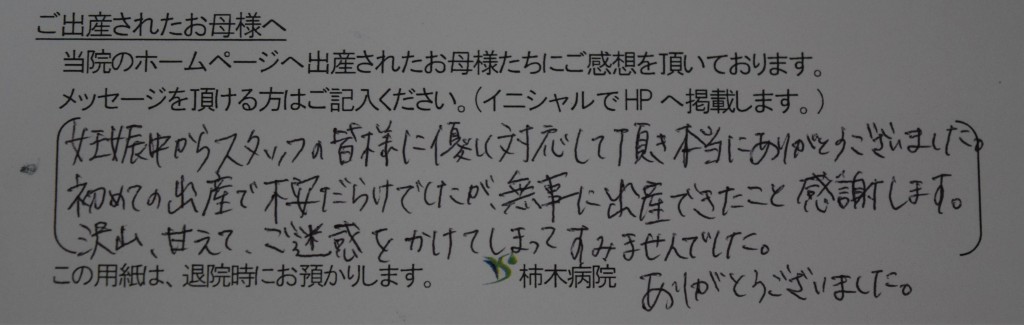 ご出産されたお母様へ
当院のホームページへ出産されたお母様たちにご感想を頂いております。
メッセージを頂ける方はご記入ください。(イニシャルでHPへ掲載します。)
妊娠中からスタッフの皆様に優しく対応して頂き本当にありがとうございました。
初めての出産で不安だらけでしたが、無事に出産できたこと感謝します。
沢山、甘えて、ご迷惑をかけてしまってすみませんでした。
この用紙は、退院時にお預かりします。 柿木病院
ありがとうございました。